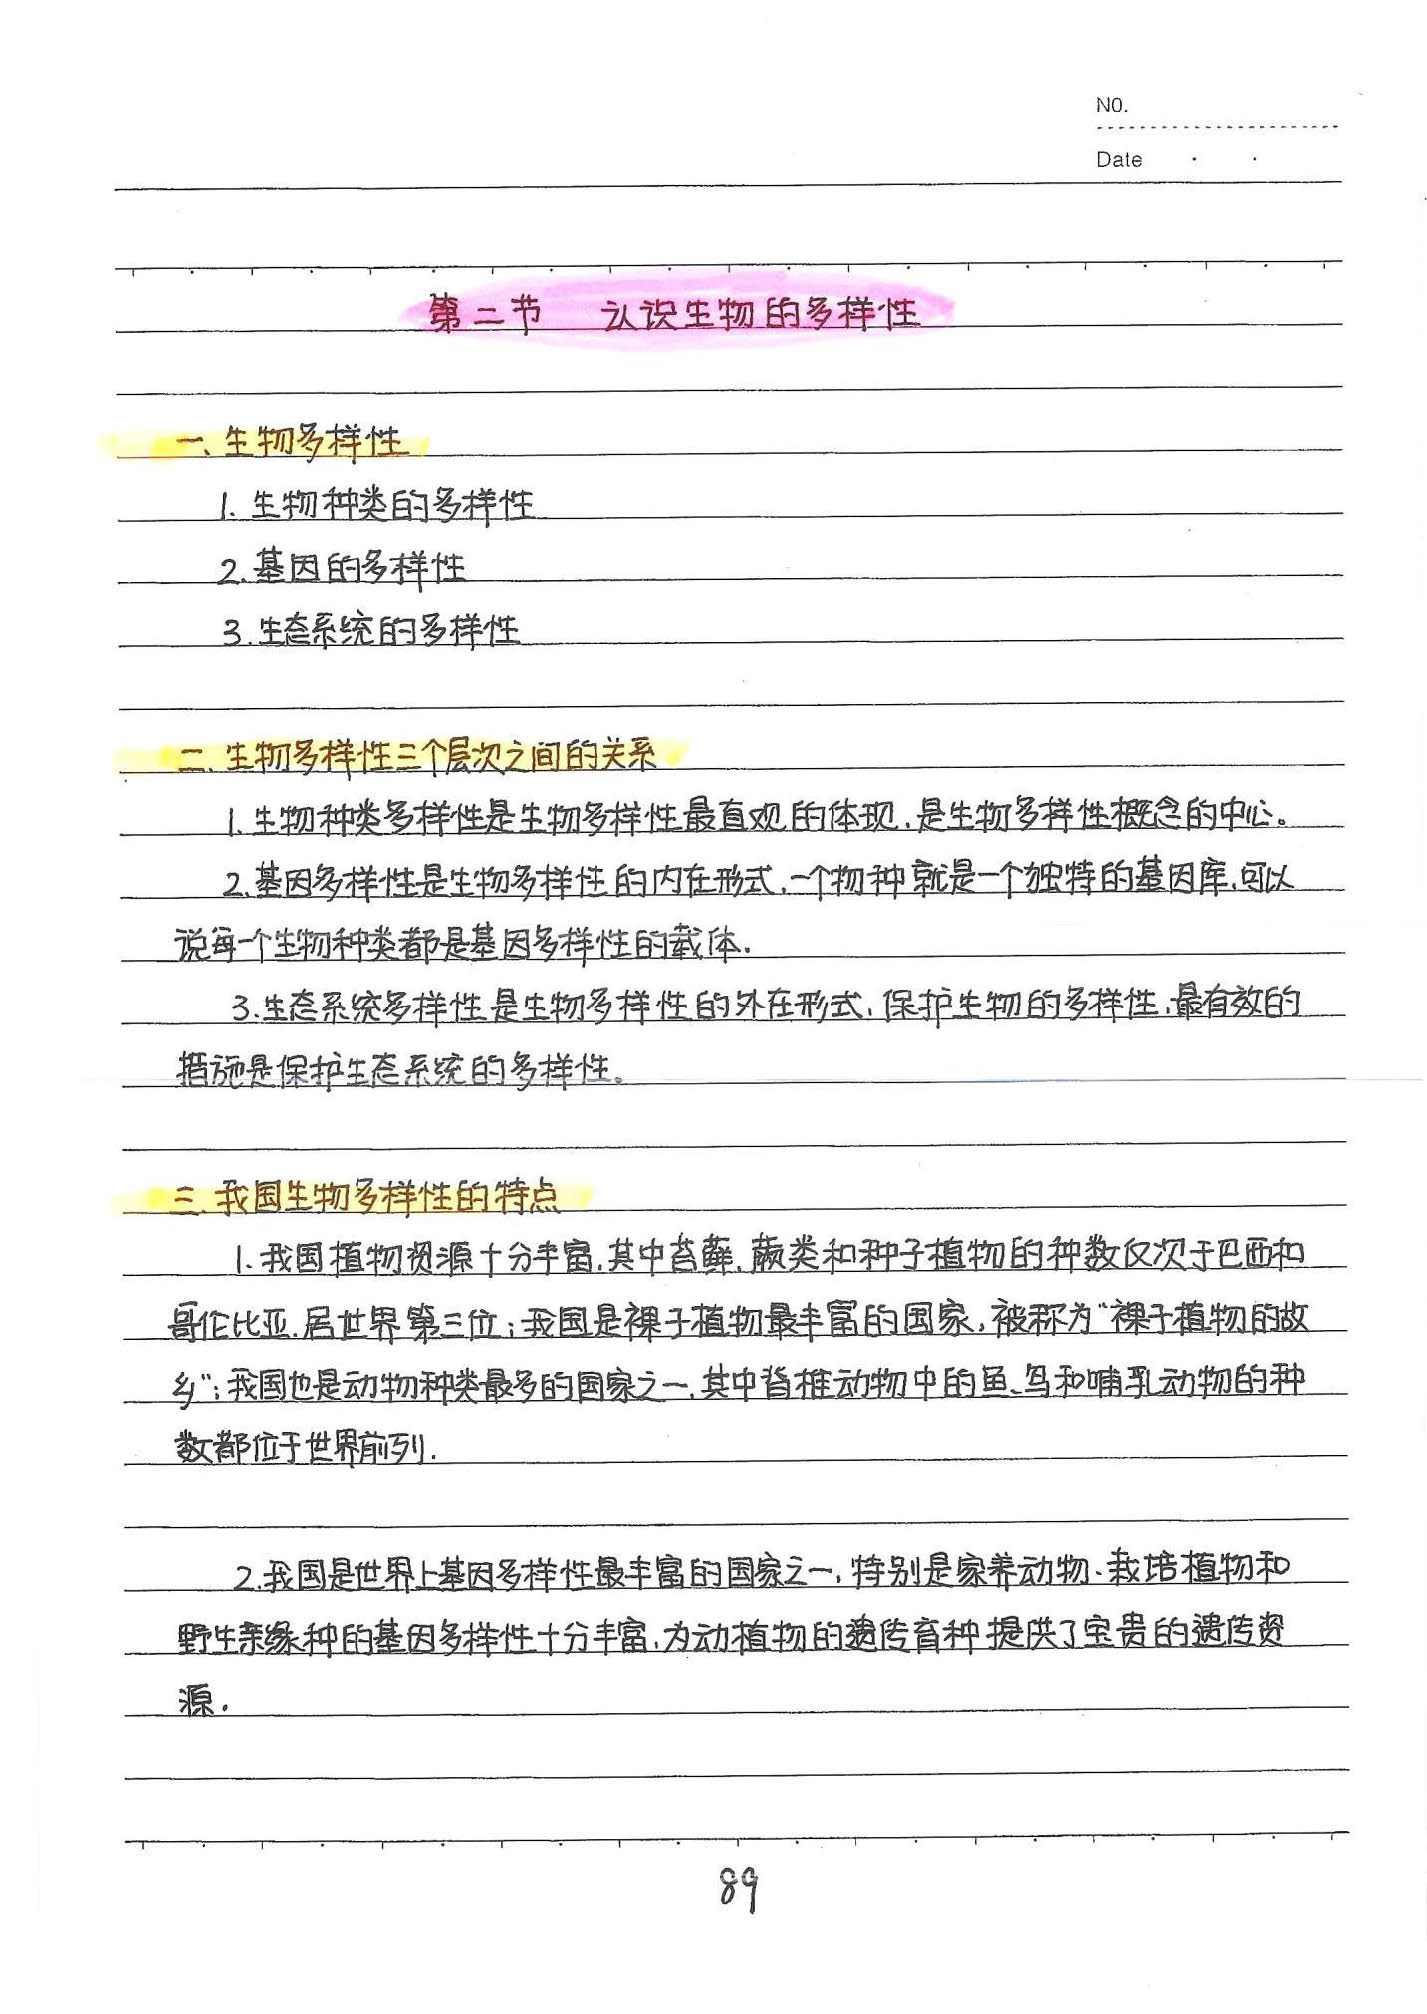 NO.
Date
第二节 认识生物的多样性
一、生物多样性
1. 生物种类的多样性
2. 基因的多样性
3. 生态系统的多样性
二、生物多样性三个层次之间的关系
1. 生物种类多样性是生物多样性最直观的体现,是生物多样性概念的中心。
2. 基因多样性是生物多样性的内在形式,一个物种就是一个独特的基因库,可以
说每一个生物种类都是基因多样性的载体.
3. 生态系统多样性是生物多样性的外在形式,保护生物的多样性,最有效的
措施是保护生态系统的多样性。
三、我国生物多样性的特点
1. 我国植物资源十分丰富,其中苔藓、蕨类和种子植物的种数仅次于巴西和
哥伦比亚,居世界第三位;我国是裸子植物最丰富的国家,被称为“裸子植物的故
乡”;我国也是动物种类最多的国家之一,其中脊椎动物中的鱼、鸟和哺乳动物的种
数都位于世界前列.
2. 我国是世界上基因多样性最丰富的国家之一,特别是家养动物、栽培植物和
野生亲缘种的基因多样性十分丰富,为动植物的遗传育种提供了宝贵的遗传资
源.
89